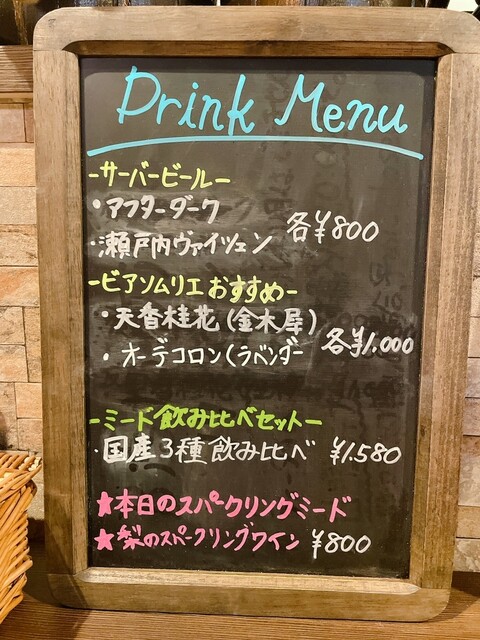 Drink Menu
-サーバービール-
・アフターダーク
・瀬戸内ヴァイツェン 各¥800
-ビアソムリエおすすめ-
・天香桂花(金木犀)
・オーデコロン(ラベンダー 各¥1,000
-ミード飲み比べセット-
・国産3種飲み比べ ¥1,580
★本日のスパークリングミード
★梨のスパークリングワイン ¥800